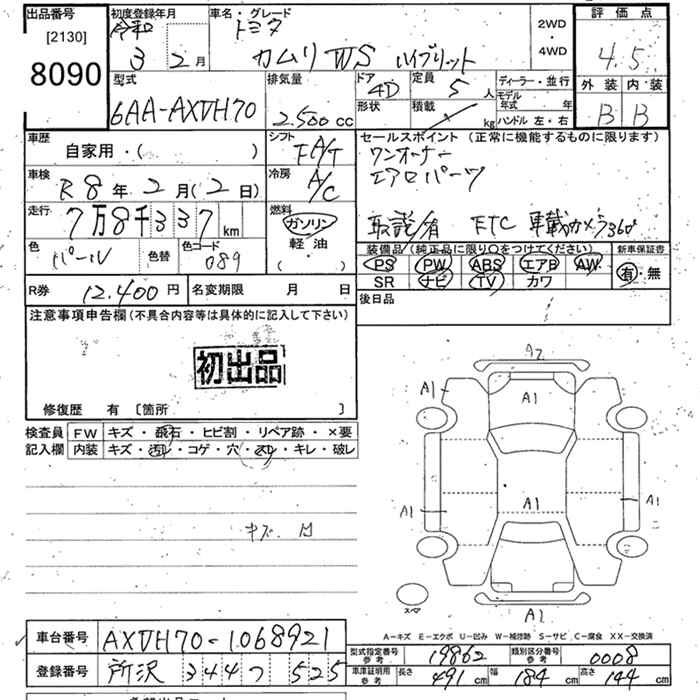 出品番号
[2130]
8090
初度登録年月
令和 3 年 2 月
車名・グレード
トヨタ
カムリ WS ハイブリット
2WD
・
4WD
評価点
4.5
外装 内装
B B
型式
6AA-AXVH70
排気量
2.500 CC
ドア
4D
形状
定員
5 人
積載
kg
ディーラー・並行
モデル年式 年
ハンドル 左・右
車歴
自家用・( )
シフト
FA/T
車検
R 8 年 2 月 ( 2 日)
冷房
A/C
走行
7万8千337 km
燃料
ガソリン
軽・油
( )
色
パール
色替
色コード
089
セールスポイント (正常に機能するものに限ります)
ワンオーナー
エアロパーツ
取説/有 ETC 車載カメラ360°
装備品(純正品に限り○をつけてください)
PS PW ABS エアB AW
SR ナビ TV カワ
新車保証書
有・無
R券 12.400 円
名変期限 月 日
後日品
注意事項申告欄(不具合内容等は具体的に記入して下さい)
初出品
修復歴 有 〔箇所 〕
検査員
記入欄
FW キズ・飛石・ヒビ割・リペア跡・×要
内装 キズ・汚れ・コゲ・穴・スレ・キレ・破レ
キズ 凹
A2
A1
A1
A1
A1
A1
A1
スペア
A-キズ E-エクボ U-凹み W-補修跡 S-サビ C-腐食 XX-交換済
車台番号 AXVH70-1068921
登録番号 所沢 344 つ 525
型式指定番号
参考
19862
類別区分番号
参考
0008
車庫証明用
参考
長さ 491 cm 幅 184 cm 高さ 144 cm